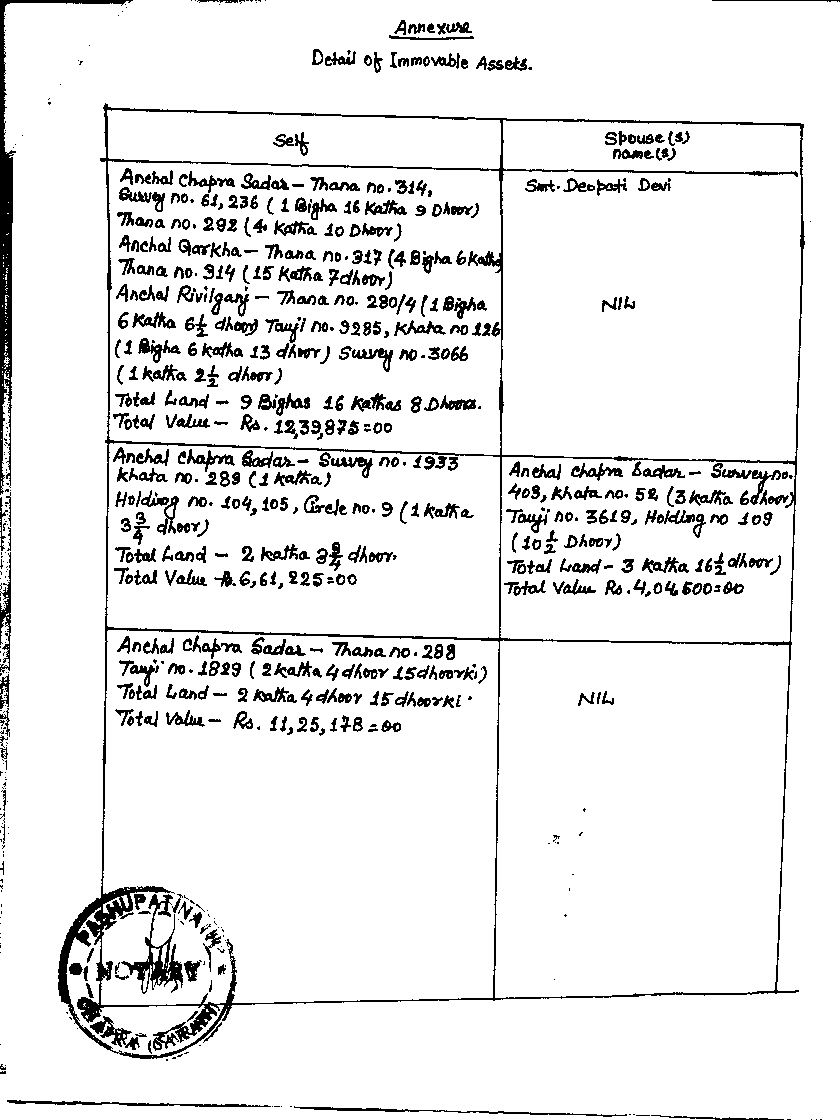 Annexure
Detail of Immovable Assets.
Self
Anchal Chapra Sadar – Thana no. 314,
Survey no. 61, 236 ( 1 Bigha 16 Katha 9 Dhoor)
Thana no. 292 (4 Katha 10 Dhoor)
Anchal Garkha – Thana no. 317 (4 Bigha 6 Katha)
Thana no. 314 ( 15 Katha 7 dhoor)
Anchal Rivilganj – Thana no. 280/4 ( 1 Bigha
6 Katha 6½ dhoor) Tauji no. 3285, Khata no 126
(1 Bigha 6 katha 13 dhoor) Survey no. 3066
( 1 katha 2½ dhoor)
Total Land – 9 Bighas 16 Kathas 8 Dhoors.
Total Value – Rs. 12,39,875=00
Anchal Chapra Sadar – Survey no. 1933
Khata no. 289 (1 katha)
Holding no. 104, 105, Circle no. 9 (1 katha
3¾ dhoor)
Total Land – 2 katha 3¾ dhoor.
Total Value – Rs. 6,61,225=00
Anchal Chapra Sadar – Thana no. 288
Tauji no. 1829 ( 2 katha 4 dhoor 15 dhoorki)
Total Land – 2 katha 4 dhoor 15 dhoorki
Total Value – Rs. 11,25,178=00
Spouse(s)
name(s)
Smt. Deopati Devi
NIL
Anchal chapra Sadar – Survey no.
409, Khata no. 52 (3 katha 6 dhoor)
Tauji no. 3619, Holding no 109
(10½ Dhoor)
Total Land – 3 Katha 16½ dhoor)
Total Value Rs. 4,04,500=00
NIL
PASHUPATINATH
NOTARY
CHAPRA (SARAN)